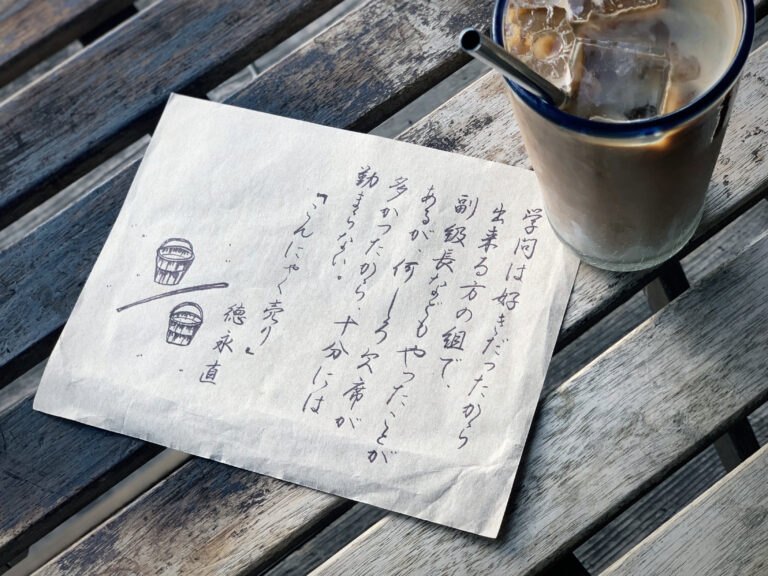 学問は好きだったから
出来る方の組で、
副級長などもやったことが
あるが、何しろ欠席が
多かったから、十分には
勤まらない。
『こんにゃく売り』
徳永直